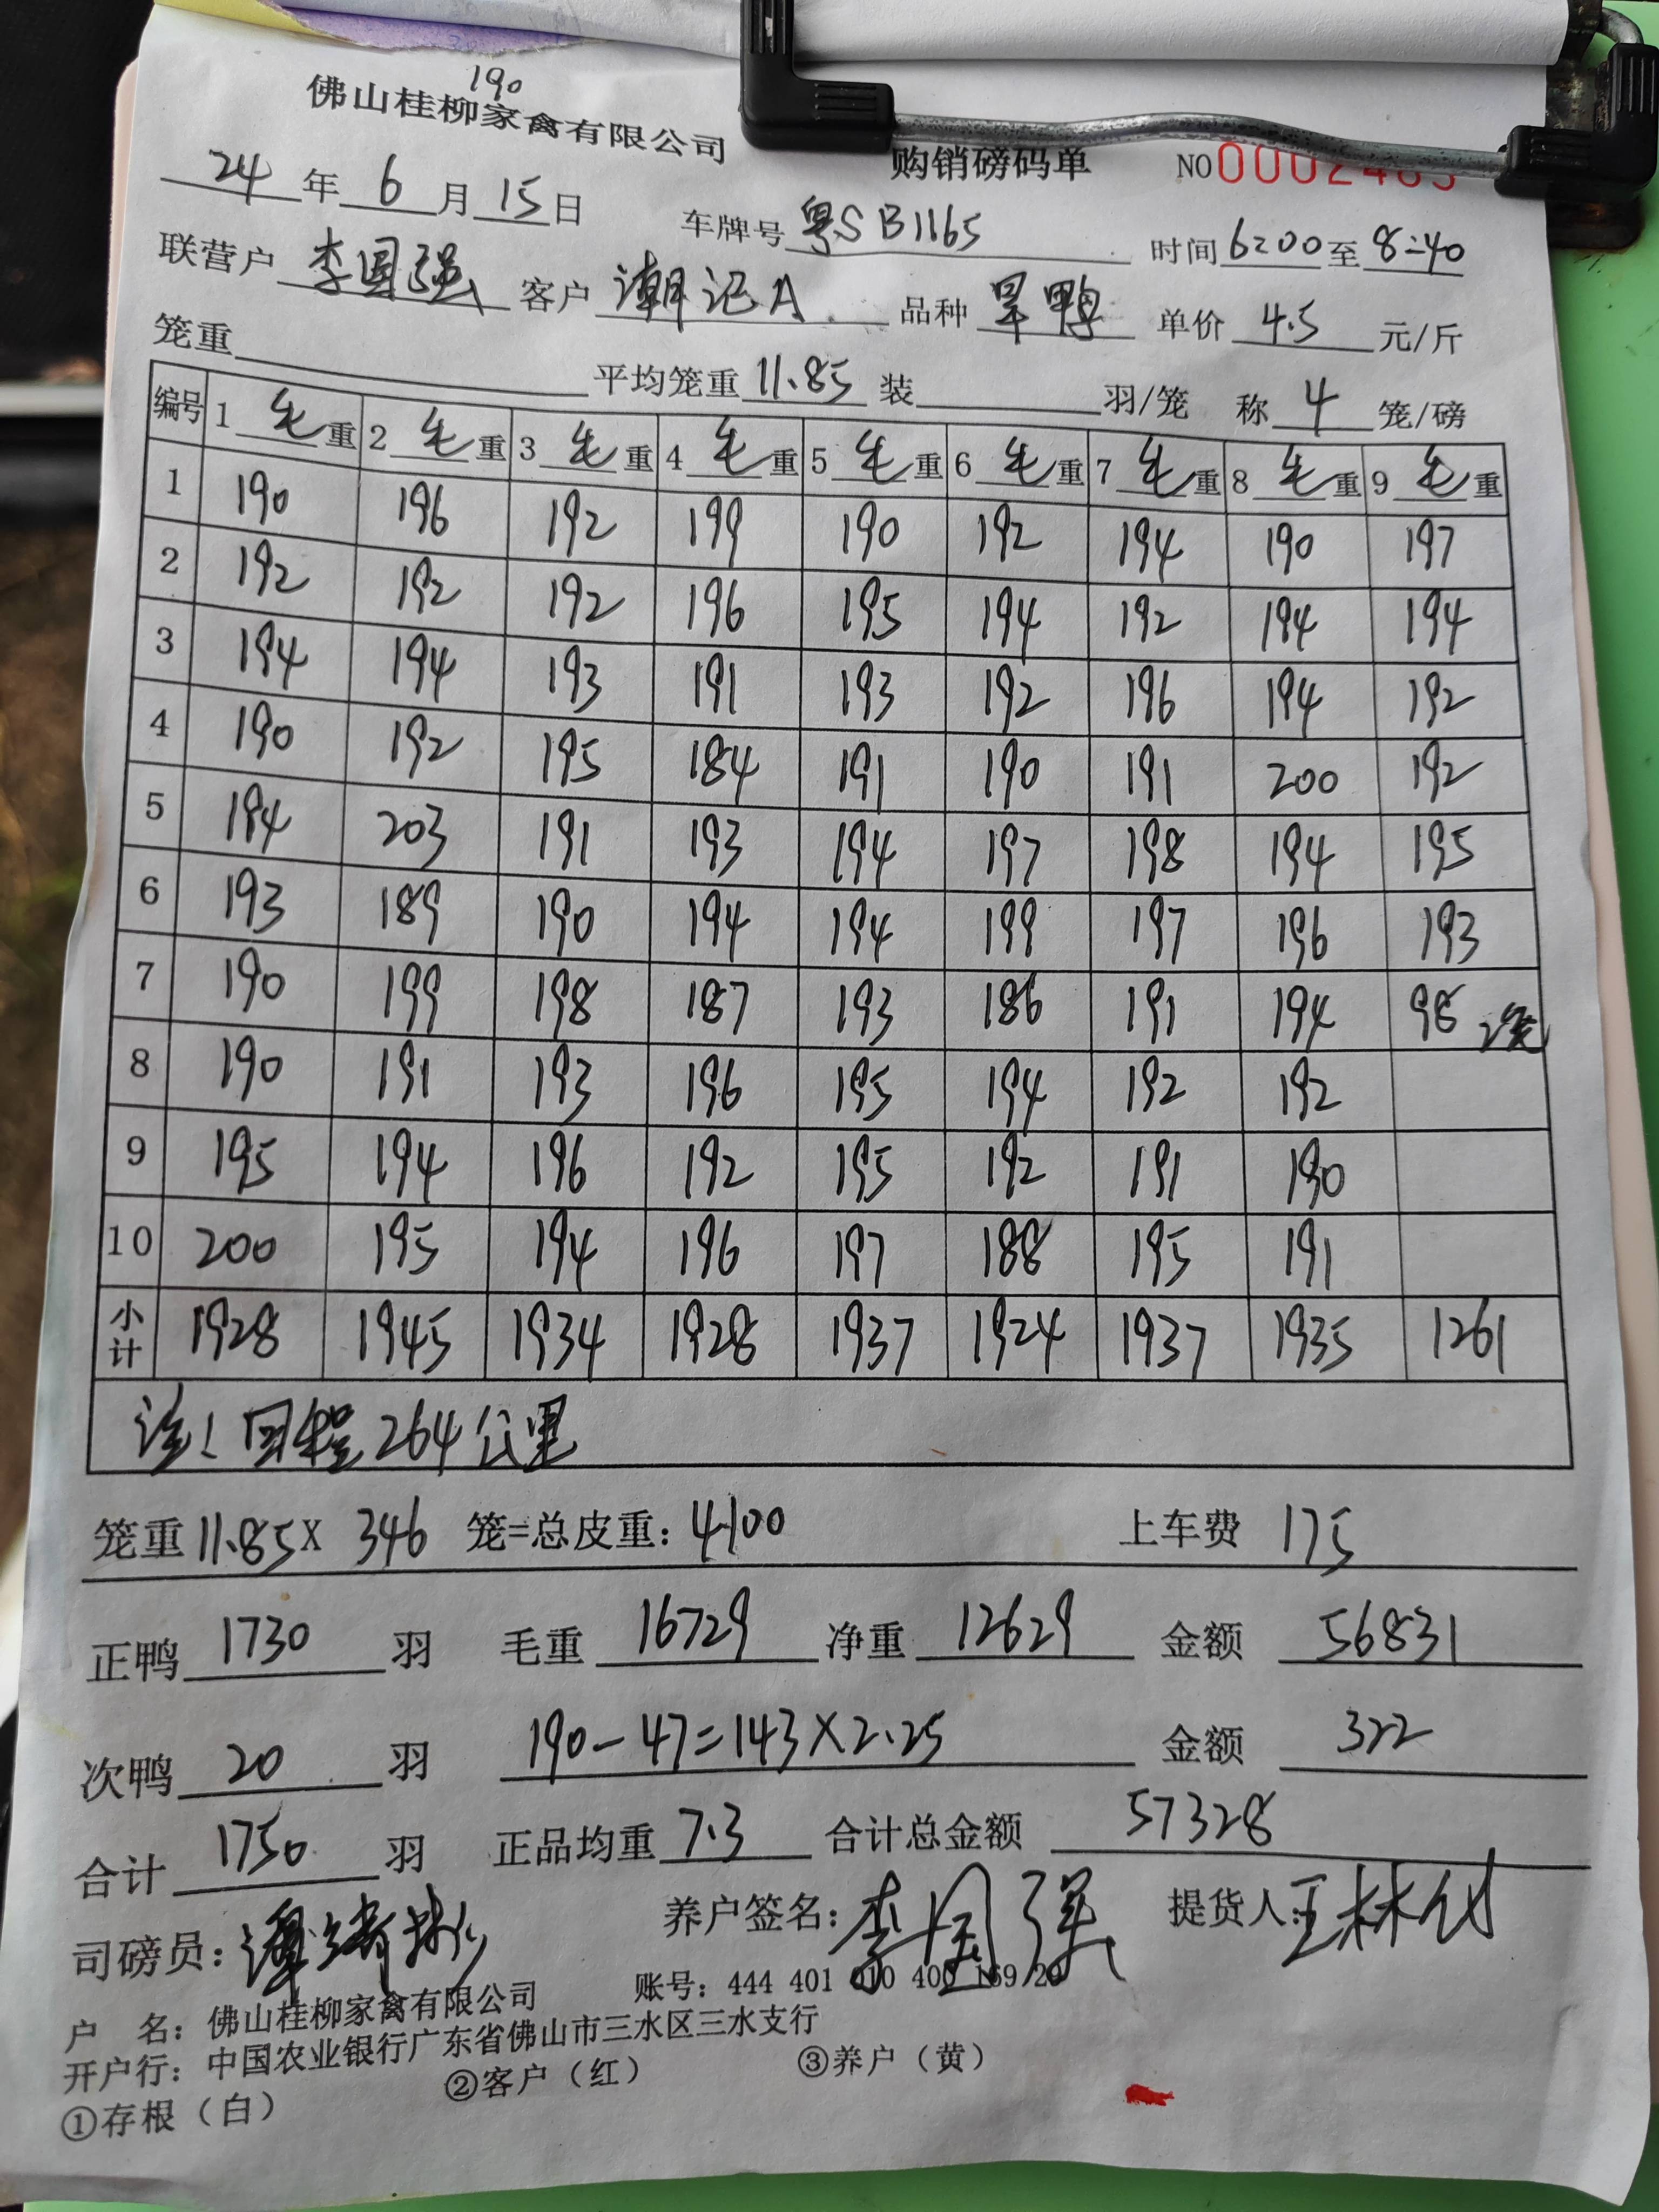 190
佛山桂柳家禽有限公司 购销磅码单 NO 0002485
24 年 6 月 15 日 车牌号 粤SB1165 时间 6:00 至 8:40
联营户 李国强 客户 潮记A 品种 旱鸭 单价 4.5 元/斤
笼重 平均笼重 11.85 装 羽/笼 称 4 笼/磅
编号 1 毛重 2 毛重 3 毛重 4 毛重 5 毛重 6 毛重 7 毛重 8 毛重 9 毛重
1 190 196 192 199 190 192 194 190 197
2 192 192 192 196 195 194 192 194 194
3 194 194 193 191 193 192 196 194 192
4 190 192 195 184 191 190 191 200 192
5 194 203 191 193 194 197 198 194 195
6 193 189 190 194 194 199 197 196 193
7 190 199 198 187 193 186 191 194 98
8 190 191 193 196 195 194 192 192
9 195 194 196 192 195 192 191 190
10 200 195 194 196 197 188 195 191
小计 1928 1945 1934 1928 1937 1924 1937 1935 1261
注: 回程264公里
笼重 11.85 X 346 笼=总皮重: 4100 上车费 175
正鸭 1730 羽 毛重 16729 净重 12629 金额 56831
次鸭 20 羽 190-47=143×2.25 金额 322
合计 1750 羽 正品均重 7.3 合计总金额 57328
司磅员: 养户签名: 李国强 提货人:
户 名: 佛山桂柳家禽有限公司 账号: 444 401 010 400 169 20
开户行: 中国农业银行广东省佛山市三水区三水支行
①存根（白） ②客户（红） ③养户（黄）